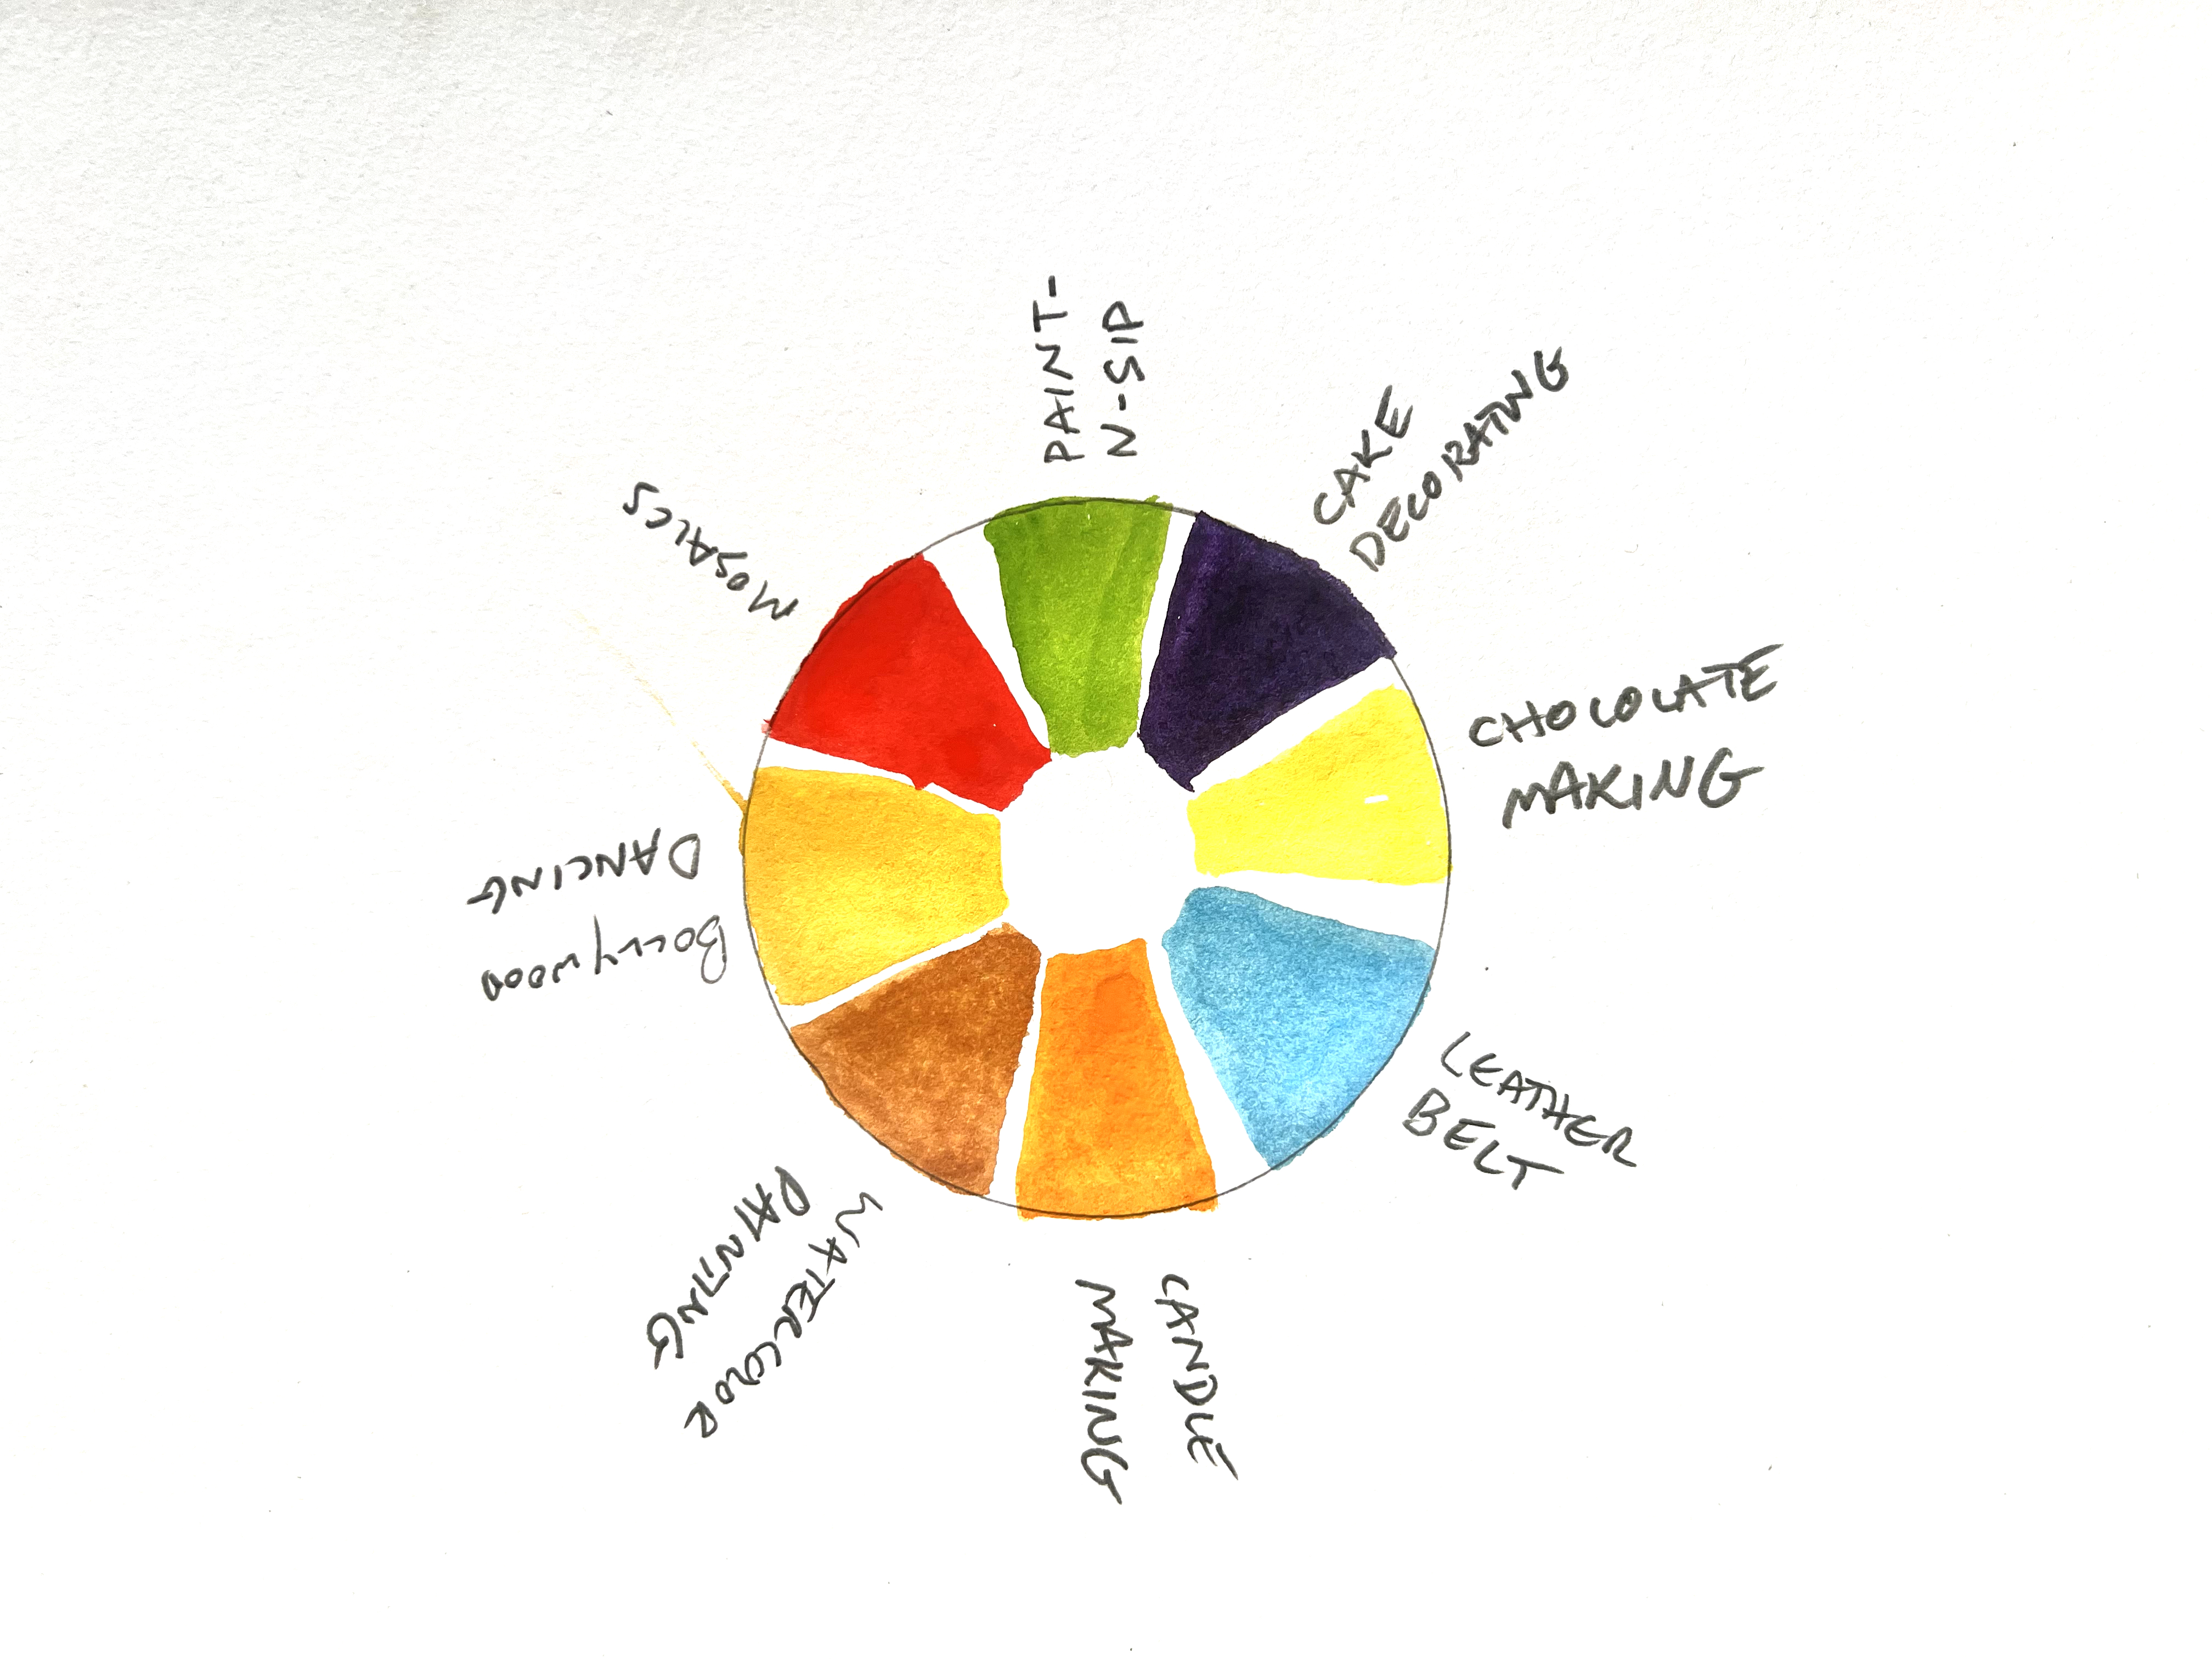 PAINT-
N-SIP
CAKE
DECORATING
CHOCOLATE
MAKING
LEATHER
BELT
CANDLE
MAKING
WATERCOLOR
PAINTING
Bollywood
DANCING
MOSAICS